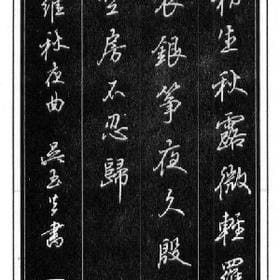 初生秋露微輕羅
衣銀箏夜久殷
空房不忍歸
維秋夜曲 吳玉生書